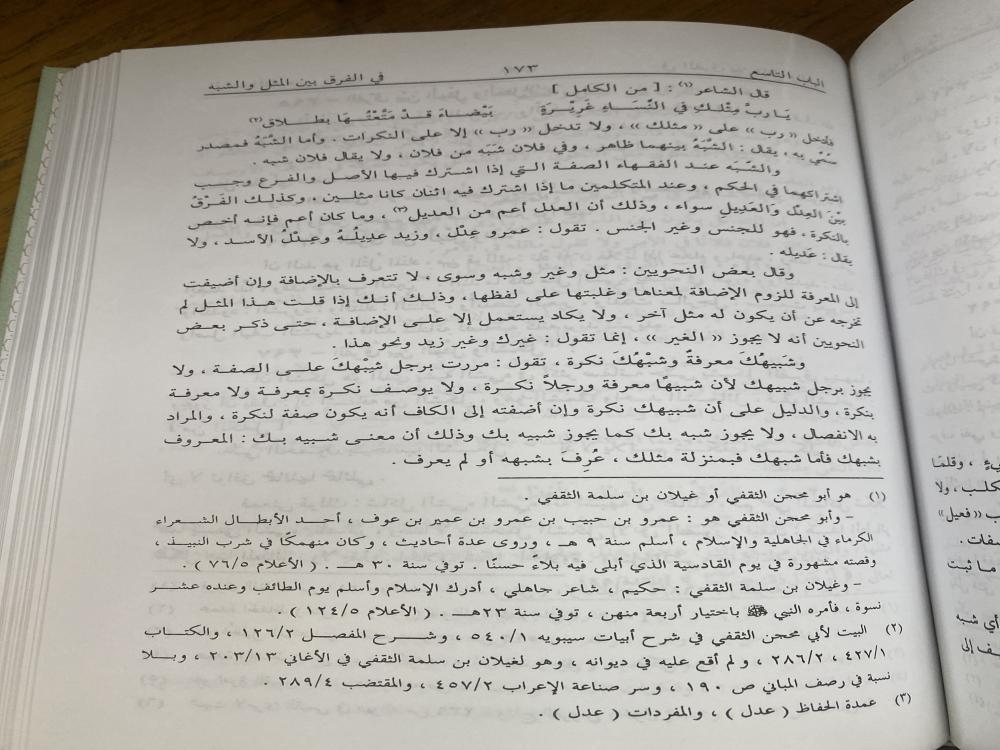 الباب التاسع ١٧٣ في الفرق بين المثل والشبه
قال الشاعر(١) : [ من الكامل ]
يَا رب مِثْلكِ فِي النِّسَاءِ غَرِيْرَةٍ بَيْضاءَ قدْ مَتَّعْتُهَا بطلاقِ(٢)
فأدخل « رب » على « مثلك » ، ولا تدخل « رب » إلا على النكرات . وأما الشَّبَهُ فمصدر
سُمّي به ، يقال : الشَّبَهُ بينهما ظاهر ، وفي فلان شَبَه من فلان ، ولا يقال فلان شبه .
والشَّبَه عند الفقهاء الصفة التي إذا اشترك فيها الأصل والفرع وجب
اشتراكهما في الحكم ، وعند المتكلمين ما إذا اشترك فيه اثنان كانا مثلين . وكذلك الفَرْقُ
بيْنَ العِدْلِ والعَدِيلِ سواء ، وذلك أن العدل أعم من العديل(٣) ، وما كان أعم فإنه أخص
بالنكرة ، فهو للجنس وغير الجنس . تقول : عمرو عِدْل ، وزيد عديلُهُ وعِدْلُ الأسد ، ولا
يقال : عَديله .
وقال بعض النحويين : مثل وغير وشبه وسوى ، لا تتعرف بالإضافة وإن أضيفت
إلى المعرفة للزوم الإضافة لمعناها وغلبتها على لفظها ، وذلك أنك إذا قلت هذا المثل لم
تخرجه عن أن يكون له مثل آخر ، ولا يكاد يستعمل إلا على الإضافة ، حتى ذكر بعض
النحويين أنه لا يجوز « الغير » ، إنما تقول : غيرك وغير زيد ونحو هذا .
وشَبيهُكَ معرفةٌ وشبْهُكَ نكرة ، تقول : مررت برجل شِبْهِكَ على الصفة ، ولا
يجوز برجل شبيهك لأن شبيهًا معرفة ورجلاً نكرة ، ولا يوصف نكرة بمعرفة ولا معرفة
بنكرة ، والدليل على أن شبيهك نكرة وإن أضفته إلى الكاف أنه يكون صفة لنكرة ، والمراد
به الانفصال ، ولا يجوز شبه بك كما يجوز شبيه بك وذلك أن معنى شبيه بك : المعروف
بشبهك فأما شبهك فبمنزلة مثلك ، عُرِفَ بشبهه أو لم يعرف .
(١) هو أبو محجن الثقفي أو غيلان بن سلمة الثقفي .
– وأبو محجن الثقفي هو : عمرو بن حبيب بن عمرو بن عمير بن عوف ، أحد الأبطال الشعراء
الكرماء في الجاهلية والإسلام ، أسلم سنة ٩ هـ ، وروى عدة أحاديث ، وكان منهمكًا في شرب النبيذ ،
وقصته مشهورة في يوم القادسية الذي أبلى فيه بلاءً حسنًا . توفي سنة ٣٠ هـ . ( الأعلام ٧٦/٥ ) .
– وغيلان بن سلمة الثقفي : حكيم ، شاعر جاهلي ، أدرك الإسلام وأسلم يوم الطائف وعنده عشر
نسوة ، فأمره النبي ﷺ باختيار أربعة منهن ، توفي سنة ٢٣هـ . ( الأعلام ١٢٤/٥ ) .
(٢) البيت لأبي محجن الثقفي في شرح أبيات سيبويه ٥٤٠/١ ، وشرح المفصل ١٢٦/٢ ، والكتاب
٤٢٧/١ ، ٢٨٦/٢ ، ولم أقع عليه في ديوانه ، وهو لغيلان بن سلمة الثقفي في الأغاني ٢٠٣/١٣ ، وبلا
نسبة في رصف المباني ص ١٩٠ ، وسر صناعة الإعراب ٤٥٧/٢ ، والمقتضب ٢٨٩/٤ .
(٣) عمدة الحفاظ ( عدل ) ، والمفردات ( عدل ) .
ـيءٍ ، وقلمَا
كلب ، ولا
ب « فعيل »
صفات .
ما ثبت
أي شبه
ـف إلى